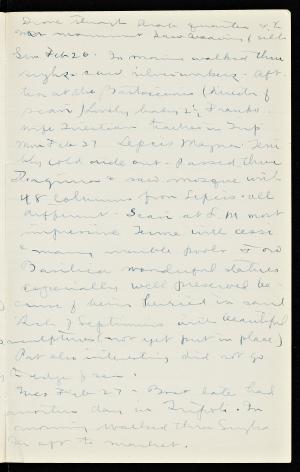 Drove through Arab quarter & to
war monument Saw weaving (silk
Sun Feb 26. In morning walked thru
sughs & saw silver workers. Aft.
tea at the Bartoccinis (director of
scavi) lovely baby 2½ Franko.
wife Triestian teaches in Trip
Mon Feb 27 Lepcis Magna. Terri-
bly cold ride out. Passed thru
& saw mosque with
48 columns from Lepcis - all
different. Scavi at L.M. most
impressive Terme with
& many marble pools &
Basilica wonderful statues
especially well preserved be-
cause of being buried in sand
Arch of Septimius with beautiful
sculptures (not yet put in place)
Port also interesting did not go
to edge of sea.
Tues Feb 27 - Boat late had
another day in Tripoli. In
morning walked thru Sughs
In aft to market.